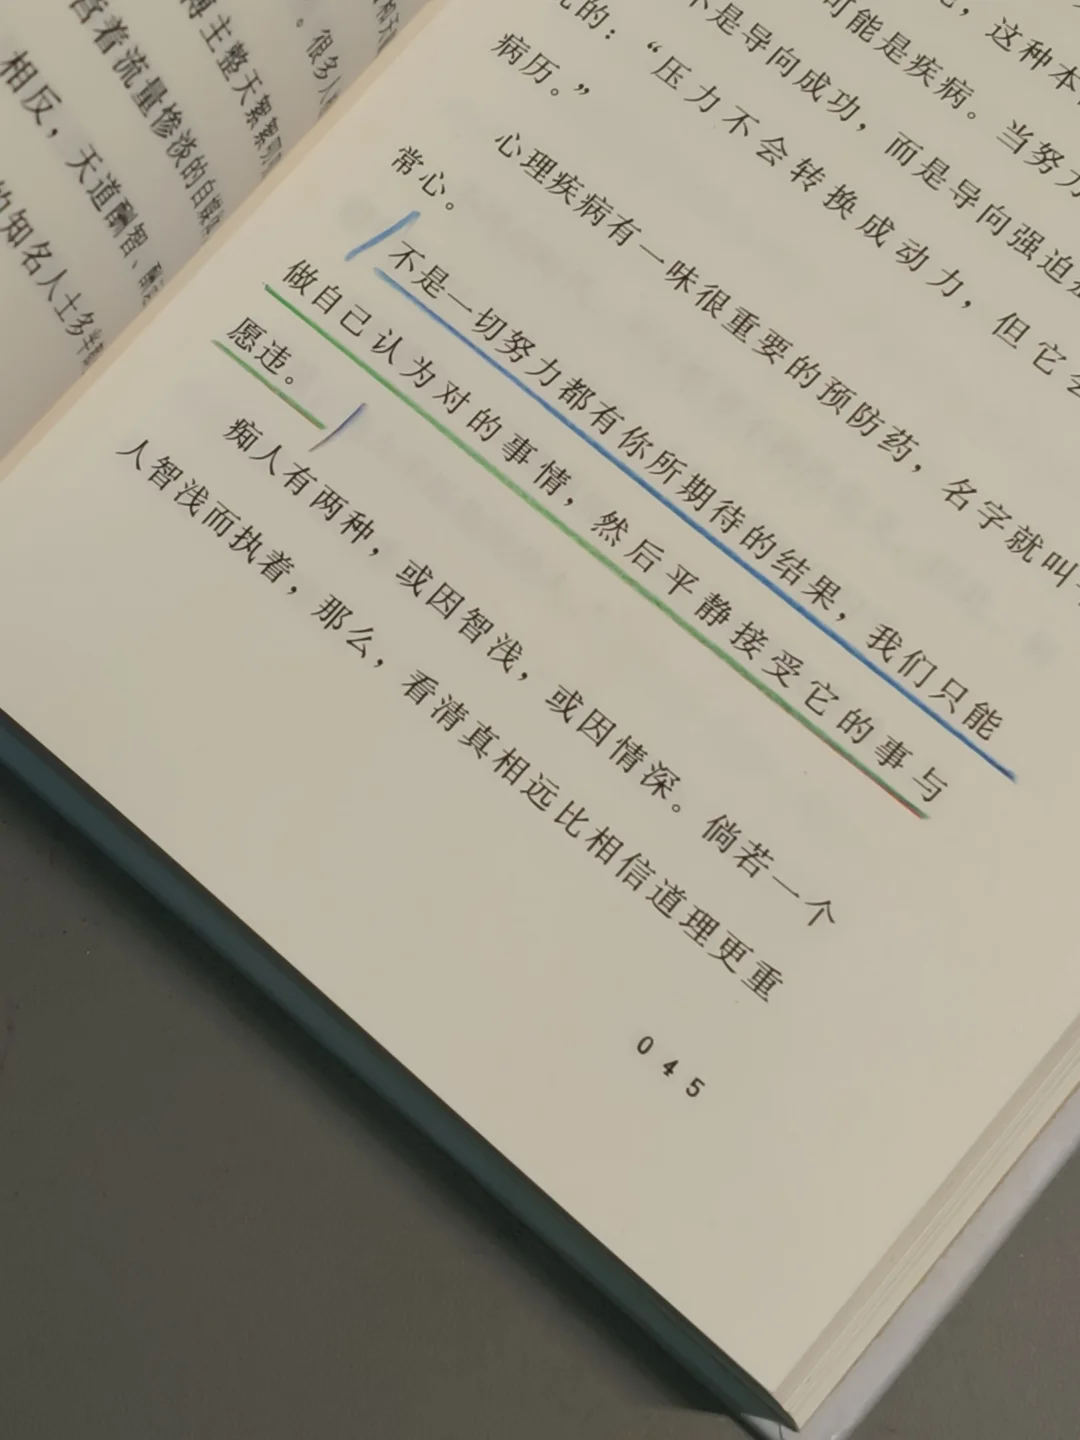 博主整天絮絮叨
营着流量惨淡的自媒
相反，天道酬智、
的知名人士多半
。很多人
，这种本
可能是疾病。当努力
不是导向成功，而是导向强迫
的：“压力不会转换成动力，但它会
病历。”
心理疾病有一味很重要的预防药，名字就叫
常心。
不是一切努力都有你所期待的结果，我们只能
做自己认为对的事情，然后平静接受它的事与
愿违。
痴人有两种，或因智浅，或因情深。倘若一个
人智浅而执着，那么，看清真相远比相信道理更重
045